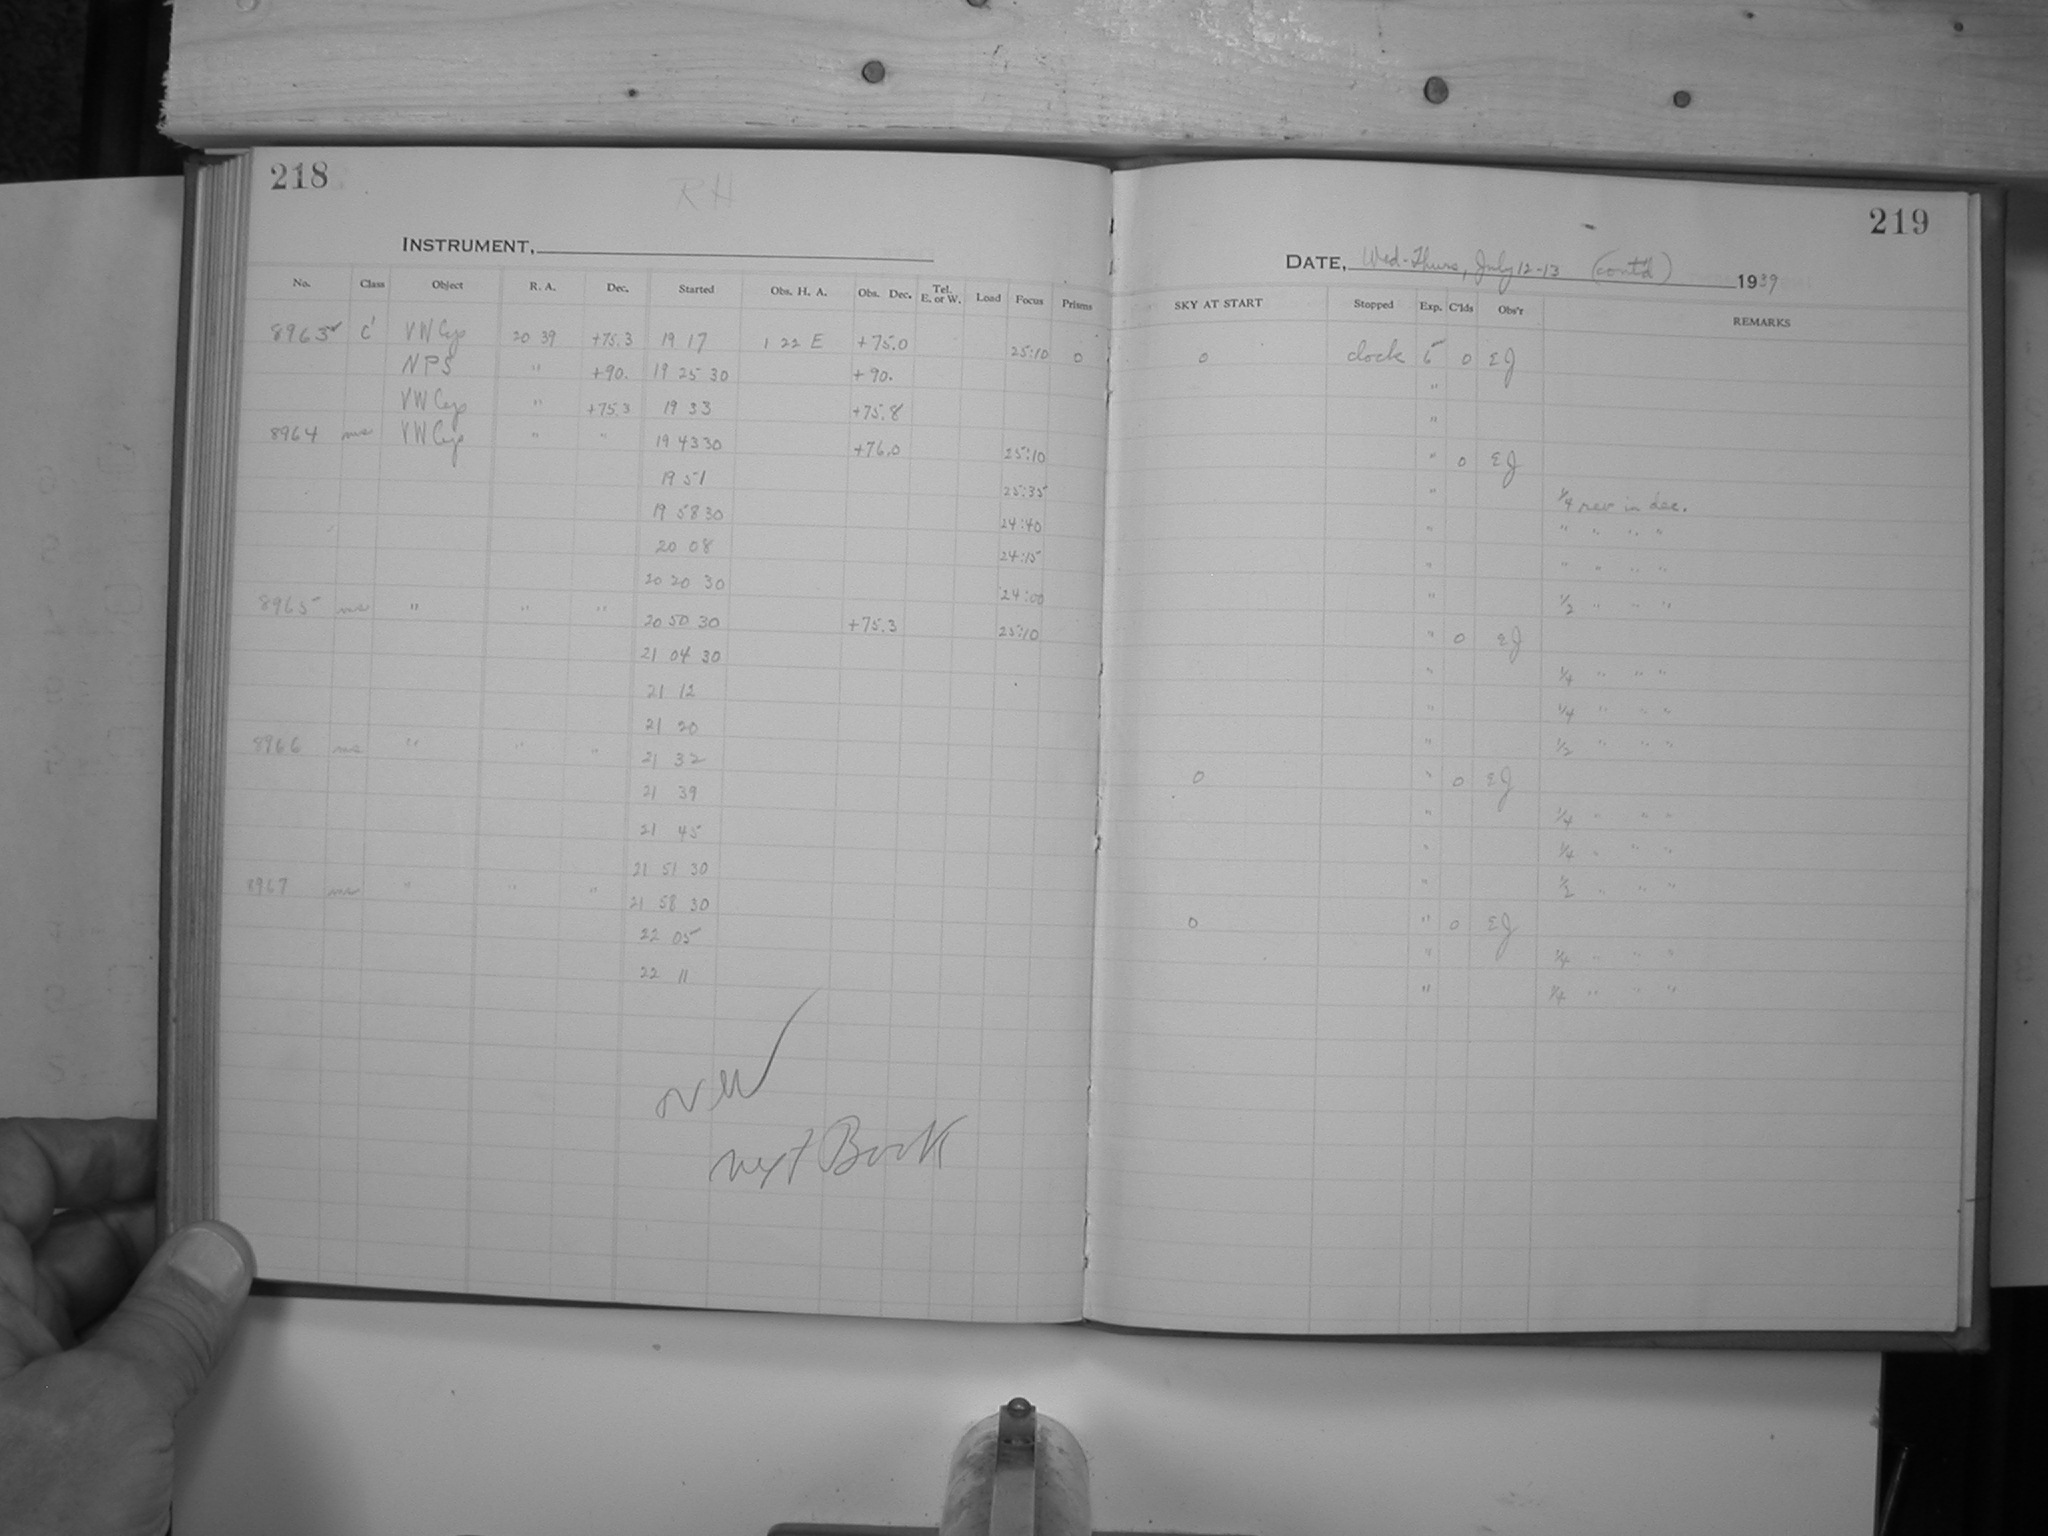 218
RH
INSTRUMENT,
No. Class Object R. A. Dec. Started Obs. H. A. Obs. Dec. Tel. E. or W. Load Focus Prisms
8963 C' VW Cep 20 39 +75.3 19 17 1 22 E +75.0 25:10 0
NPS " +90. 19 25 30 +90.
VW Cep " +75.3 19 33 +75.8
8964 ms VW Cep " " 19 43 30 +76.0 25:10
19 51 25:35
19 58 30 24:40
20 08 24:15
20 20 30 24:00
8965 ms " " " 20 50 30 +75.3 25:10
21 04 30
21 12
21 20
8966 ms " " " 21 32
21 39
21 45
21 51 30
8967 ms " " " 21 58 30
22 05
22 11
next Book
219
DATE, Wed-Thurs, July 12-13 (cont'd) 1939
SKY AT START Stopped Exp. C'lds Obs'r REMARKS
0 clock 5 0 EJ
"
"
" 0 EJ
" 1/4 rev in dec.
" " " " "
" " " " "
" 1/2 " " "
" 0 EJ
" 1/4 " " "
" 1/4 " " "
" 1/2 " " "
0 " 0 EJ
" 1/4 " " "
" 1/4 " " "
" 1/2 " " "
0 " 0 EJ
" 1/4 " " "
" 1/4 " " "